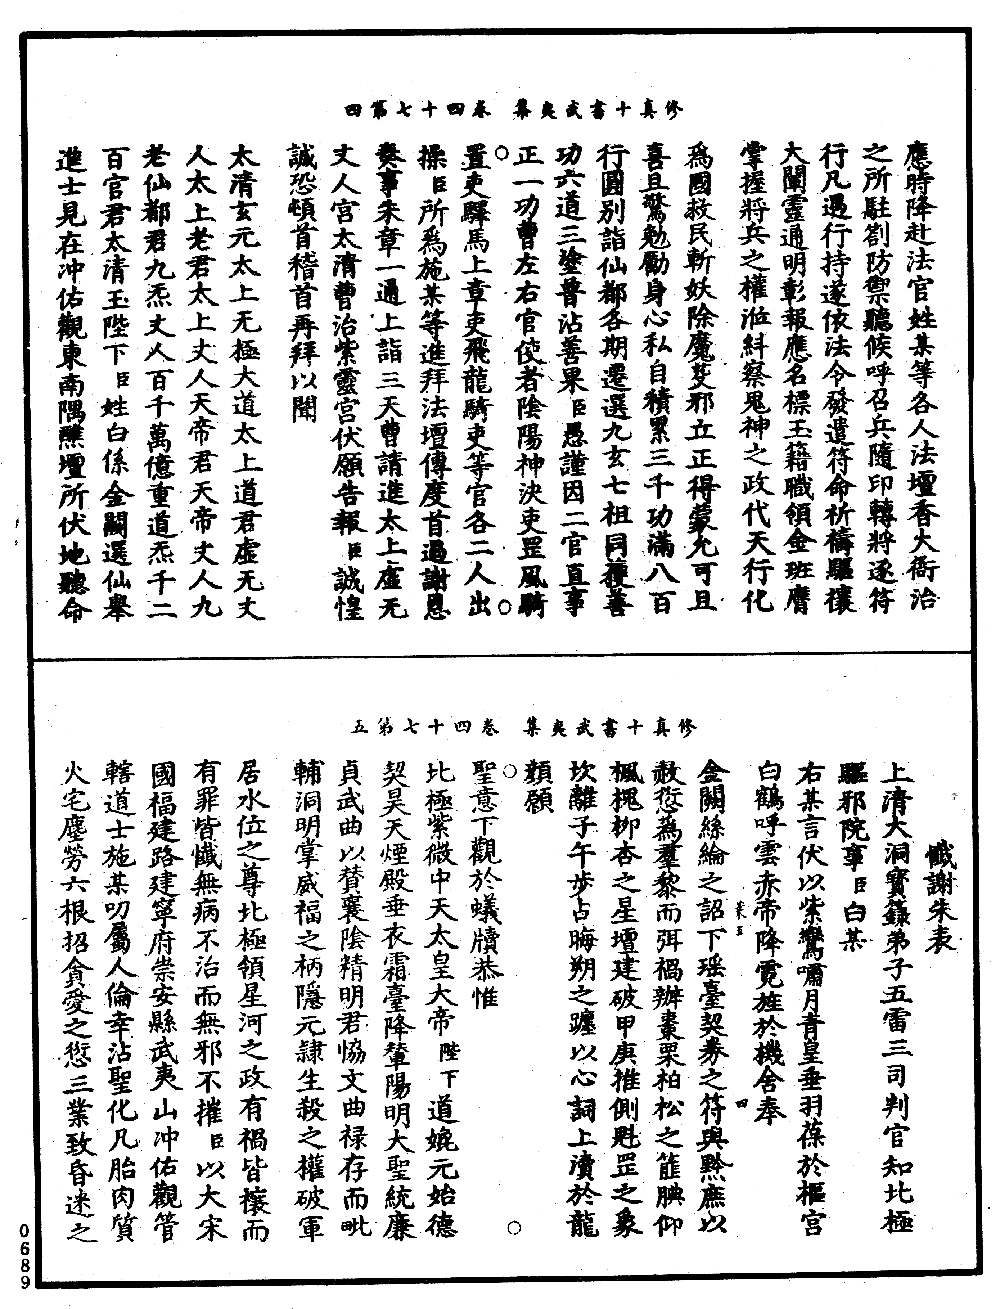 修真十書武夷集 卷四十七第四
應時降赴法官姓某等各人法壇香火衙治
之所駐劄防禦聽候呼召兵隨印轉將逐符
行凡遇行持遂依法令發遣符命祈禱驅禳
大闡靈通明彰報應名標玉籍職領金班膺
掌握將兵之權涖糾察鬼神之政代天行化
爲國救民斬妖除魔芟邪立正得蒙允可且
喜且驚勉勵身心私自積累三千功滿八百
行圓別詣仙都各期遷選九玄七祖同獲善
功六道三塗普沾善果臣愚謹因二官直事
正一功曹左右官使者陰陽神決吏罡風騎
置吏驛馬上章吏飛龍騎吏等官各二人出
操臣所爲施某等進拜法壇傳度首過謝恩
奏事朱章一通上詣三天曹請進太上虛无
丈人宮太清曹治紫靈宮伏願告報臣誠惶
誠恐頓首稽首再拜以聞
太清玄元太上无極大道太上道君虛无丈
人太上老君太上丈人天帝君天帝丈人九
老仙都君九炁丈人百千萬億重道炁千二
百官君太清玉陛下臣姓白係金闕選仙舉
進士見在冲佑觀東南隅醮壇所伏地聽命
修真十書武夷集 卷四十七第五
懺謝朱表
上清大洞寶籙弟子五雷三司判官知北極
驅邪院事臣白某
右某言伏以紫鸞嘯月青皇垂羽葆於樞宮
白鶴呼雲赤帝降霓旌於機舍奉
金闕絲綸之詔下瑤臺契券之符與黔庶以
赦愆爲羣黎而弭禍辦棗栗柏松之簄腆仰
楓槐柳杏之星壇建破甲庚推側魁罡之象
坎離子午步占晦朔之躔以心詞上瀆於龍
顏願
聖意下觀於蟻牘恭惟
北極紫微中天太皇大帝陛下道嬈元始德
契昊天煙殿垂衣霜臺降輦陽明大聖統廉
貞武曲以賛襄陰精明君恊文曲祿存而毗
輔洞明掌威福之柄隱元隷生殺之權破軍
居水位之尊北極領星河之政有禍皆禳而
有罪皆懺無病不治而無邪不摧臣以大宋
國福建路建寧府崇安縣武夷山冲佑觀管
轄道士施某叨屬人倫幸沾聖化凡胎肉質
火宅塵勞六根招貪愛之愆三業致昏迷之
0689